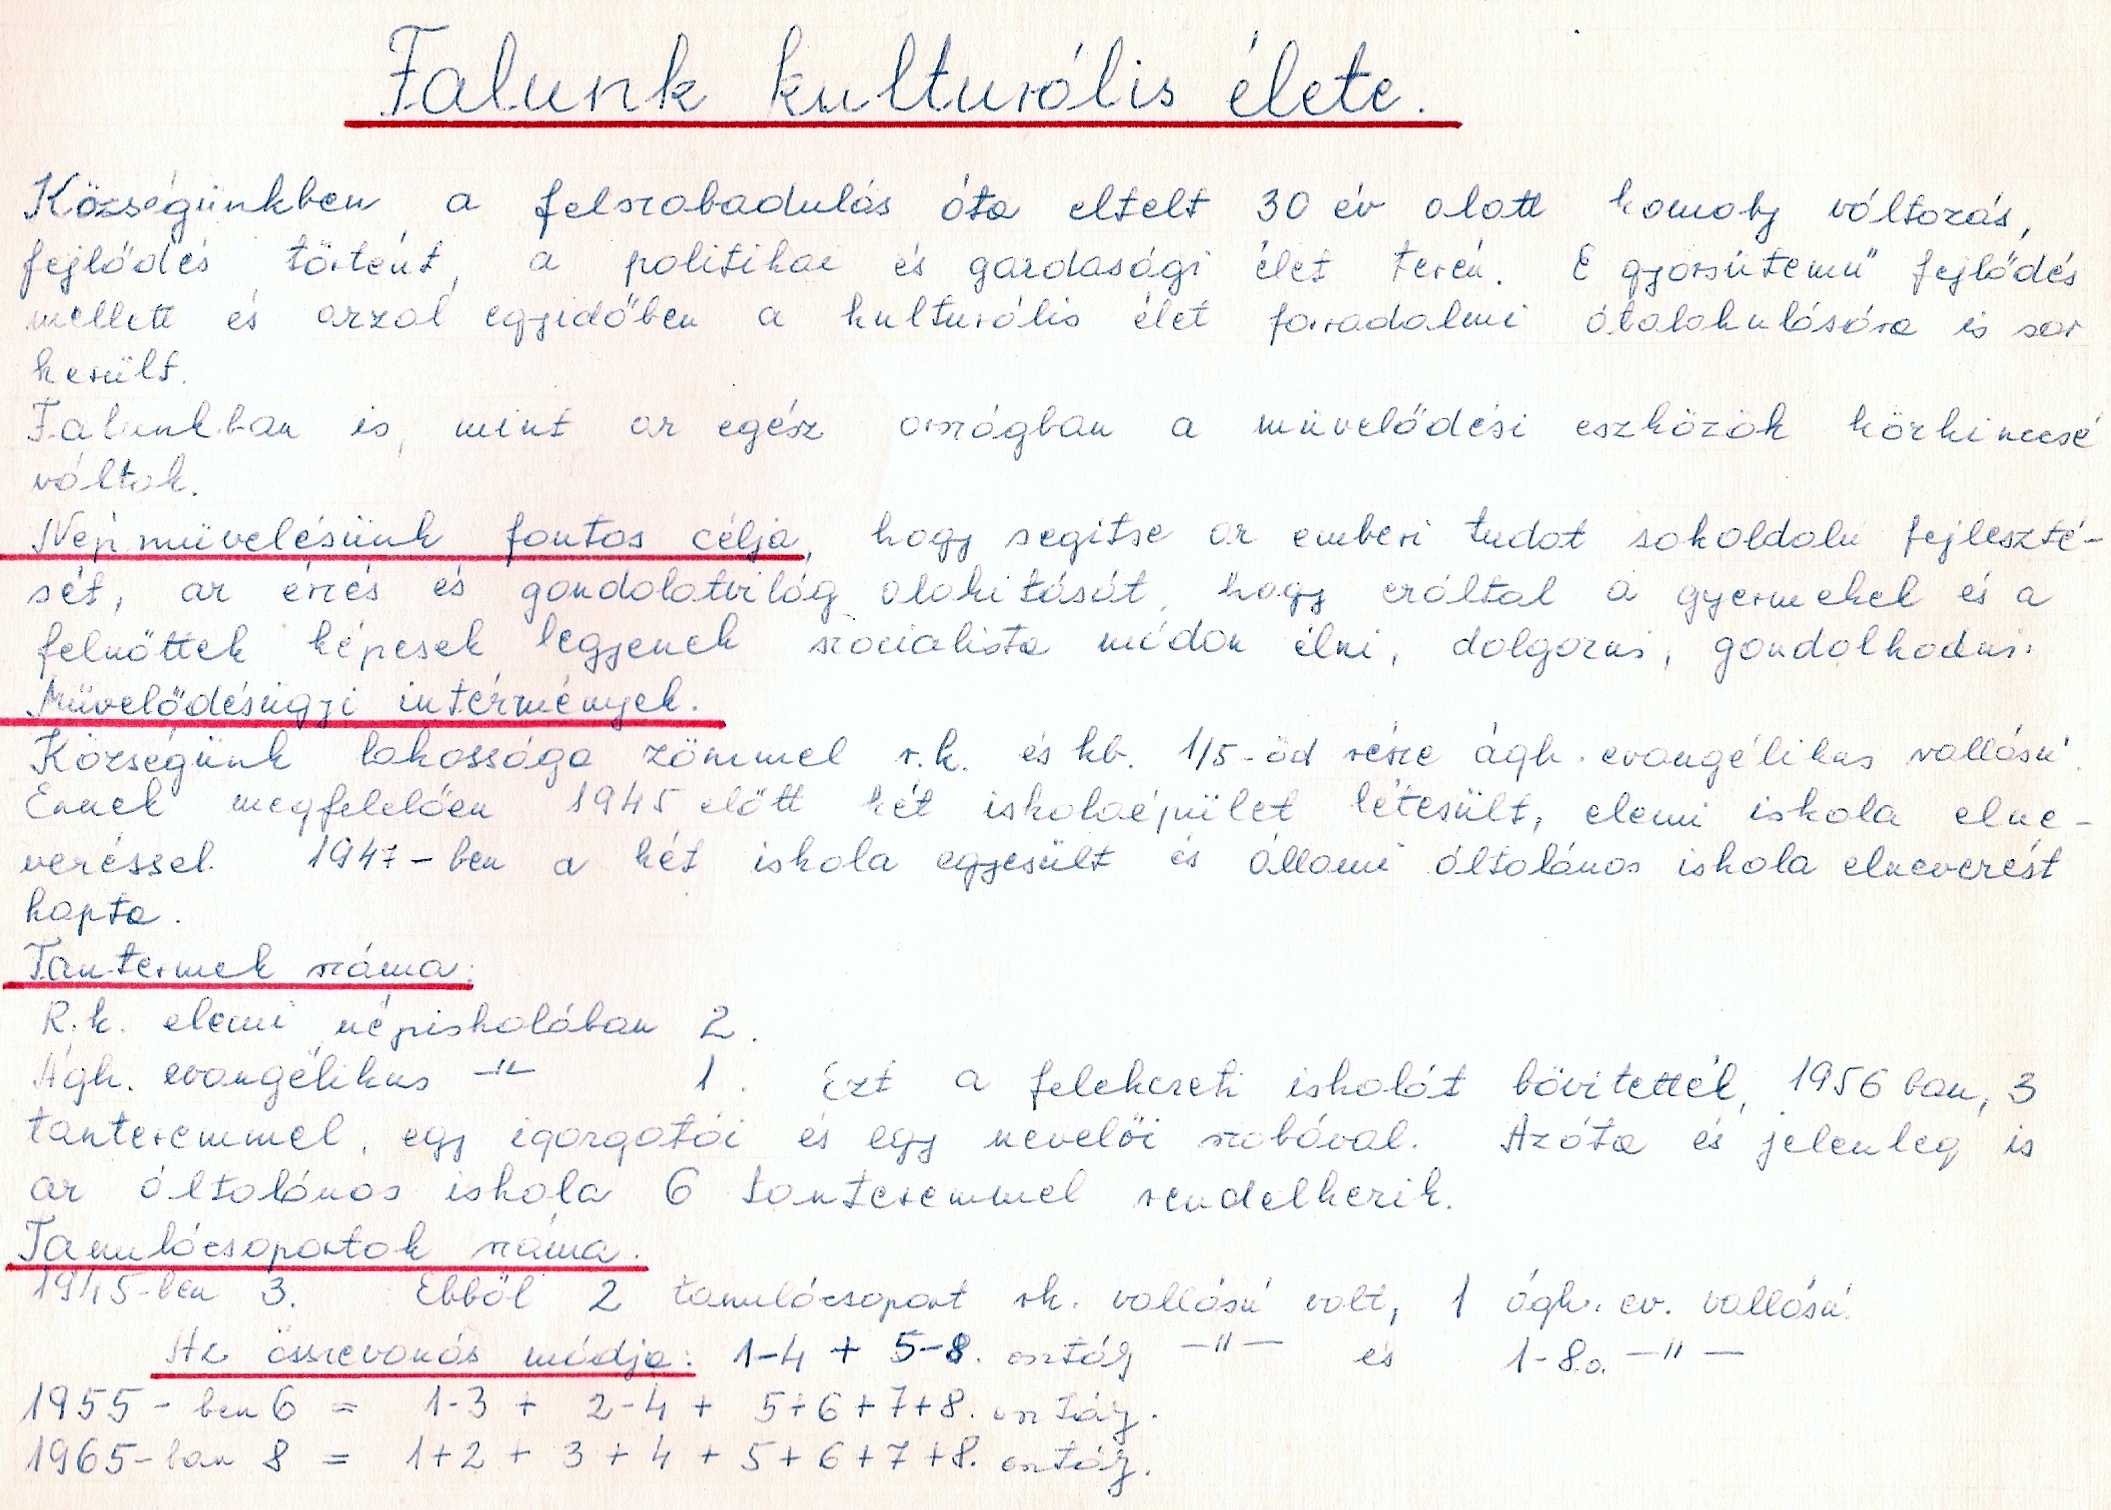 Falunk kulturális élete.
Községünkben a felszabadulás óta eltelt 30 év alatt komoly változás,
fejlődés történt, a politikai és gazdasági élet terén. E gyorsütemű fejlődés
mellett és azzal egyidőben a kulturális élet forradalmi átalakulására is sor
került.
Falunkban is, mint az egész országban a müvelődési eszközök közkinccsé
váltak.
Népmüvelésünk fontos célja, hogy segitse az emberi tudat sokoldalu fejleszté-
sét, az érzés és gondolatvilág alakitását, hogy ezáltal a gyermekek és a
felnőttek képesek legyenek szocialista módon élni, dolgozni, gondolkodni.
Müvelődésügyi intézmények.
Községünk lakossága zömmel r.k. és kb. 1/5-öd része ágh. evangélikus vallásu.
Ennek megfelelően 1945 előtt két iskolaépület létesült, elemi iskola elne-
vezéssel. 1947-ben a két iskola egyesült és állami általános iskola elnevezést
kapta.
Tantermek száma:
R.k. elemi népiskolában 2.
Ágh. evangélikus -"- 1. Ezt a felekezeti iskolát bővitették, 1956 ban, 3
tanteremmel, egy igazgatói és egy nevelői szobával. Azóta és jelenleg is
az általános iskola 6 tanteremmel rendelkezik.
Tanulócsoportok száma.
1945-ben 3. Ebből 2 tanulócsoport rk. vallásu volt, 1 ágh. ev. vallásu.
Az összevonás módja: 1-4 + 5-8. osztály -"- és 1-8.o. -"-
1955-ben 6 = 1-3 + 2-4 + 5+6+7+8. osztály.
1965-ban 8 = 1+2 + 3 + 4 + 5+6+7+8. osztály.